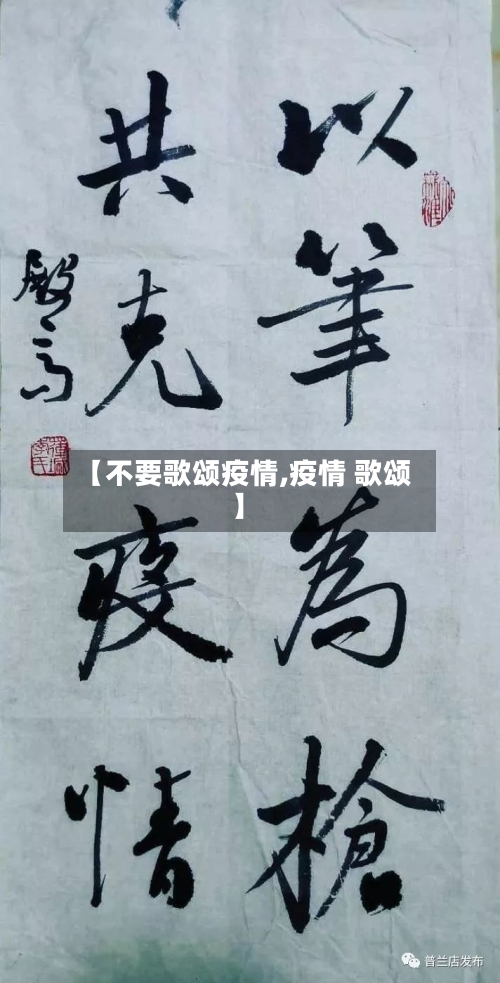 以筆為槍
共克疫情
【不要歌颂疫情,疫情 歌颂
】
普兰店发布